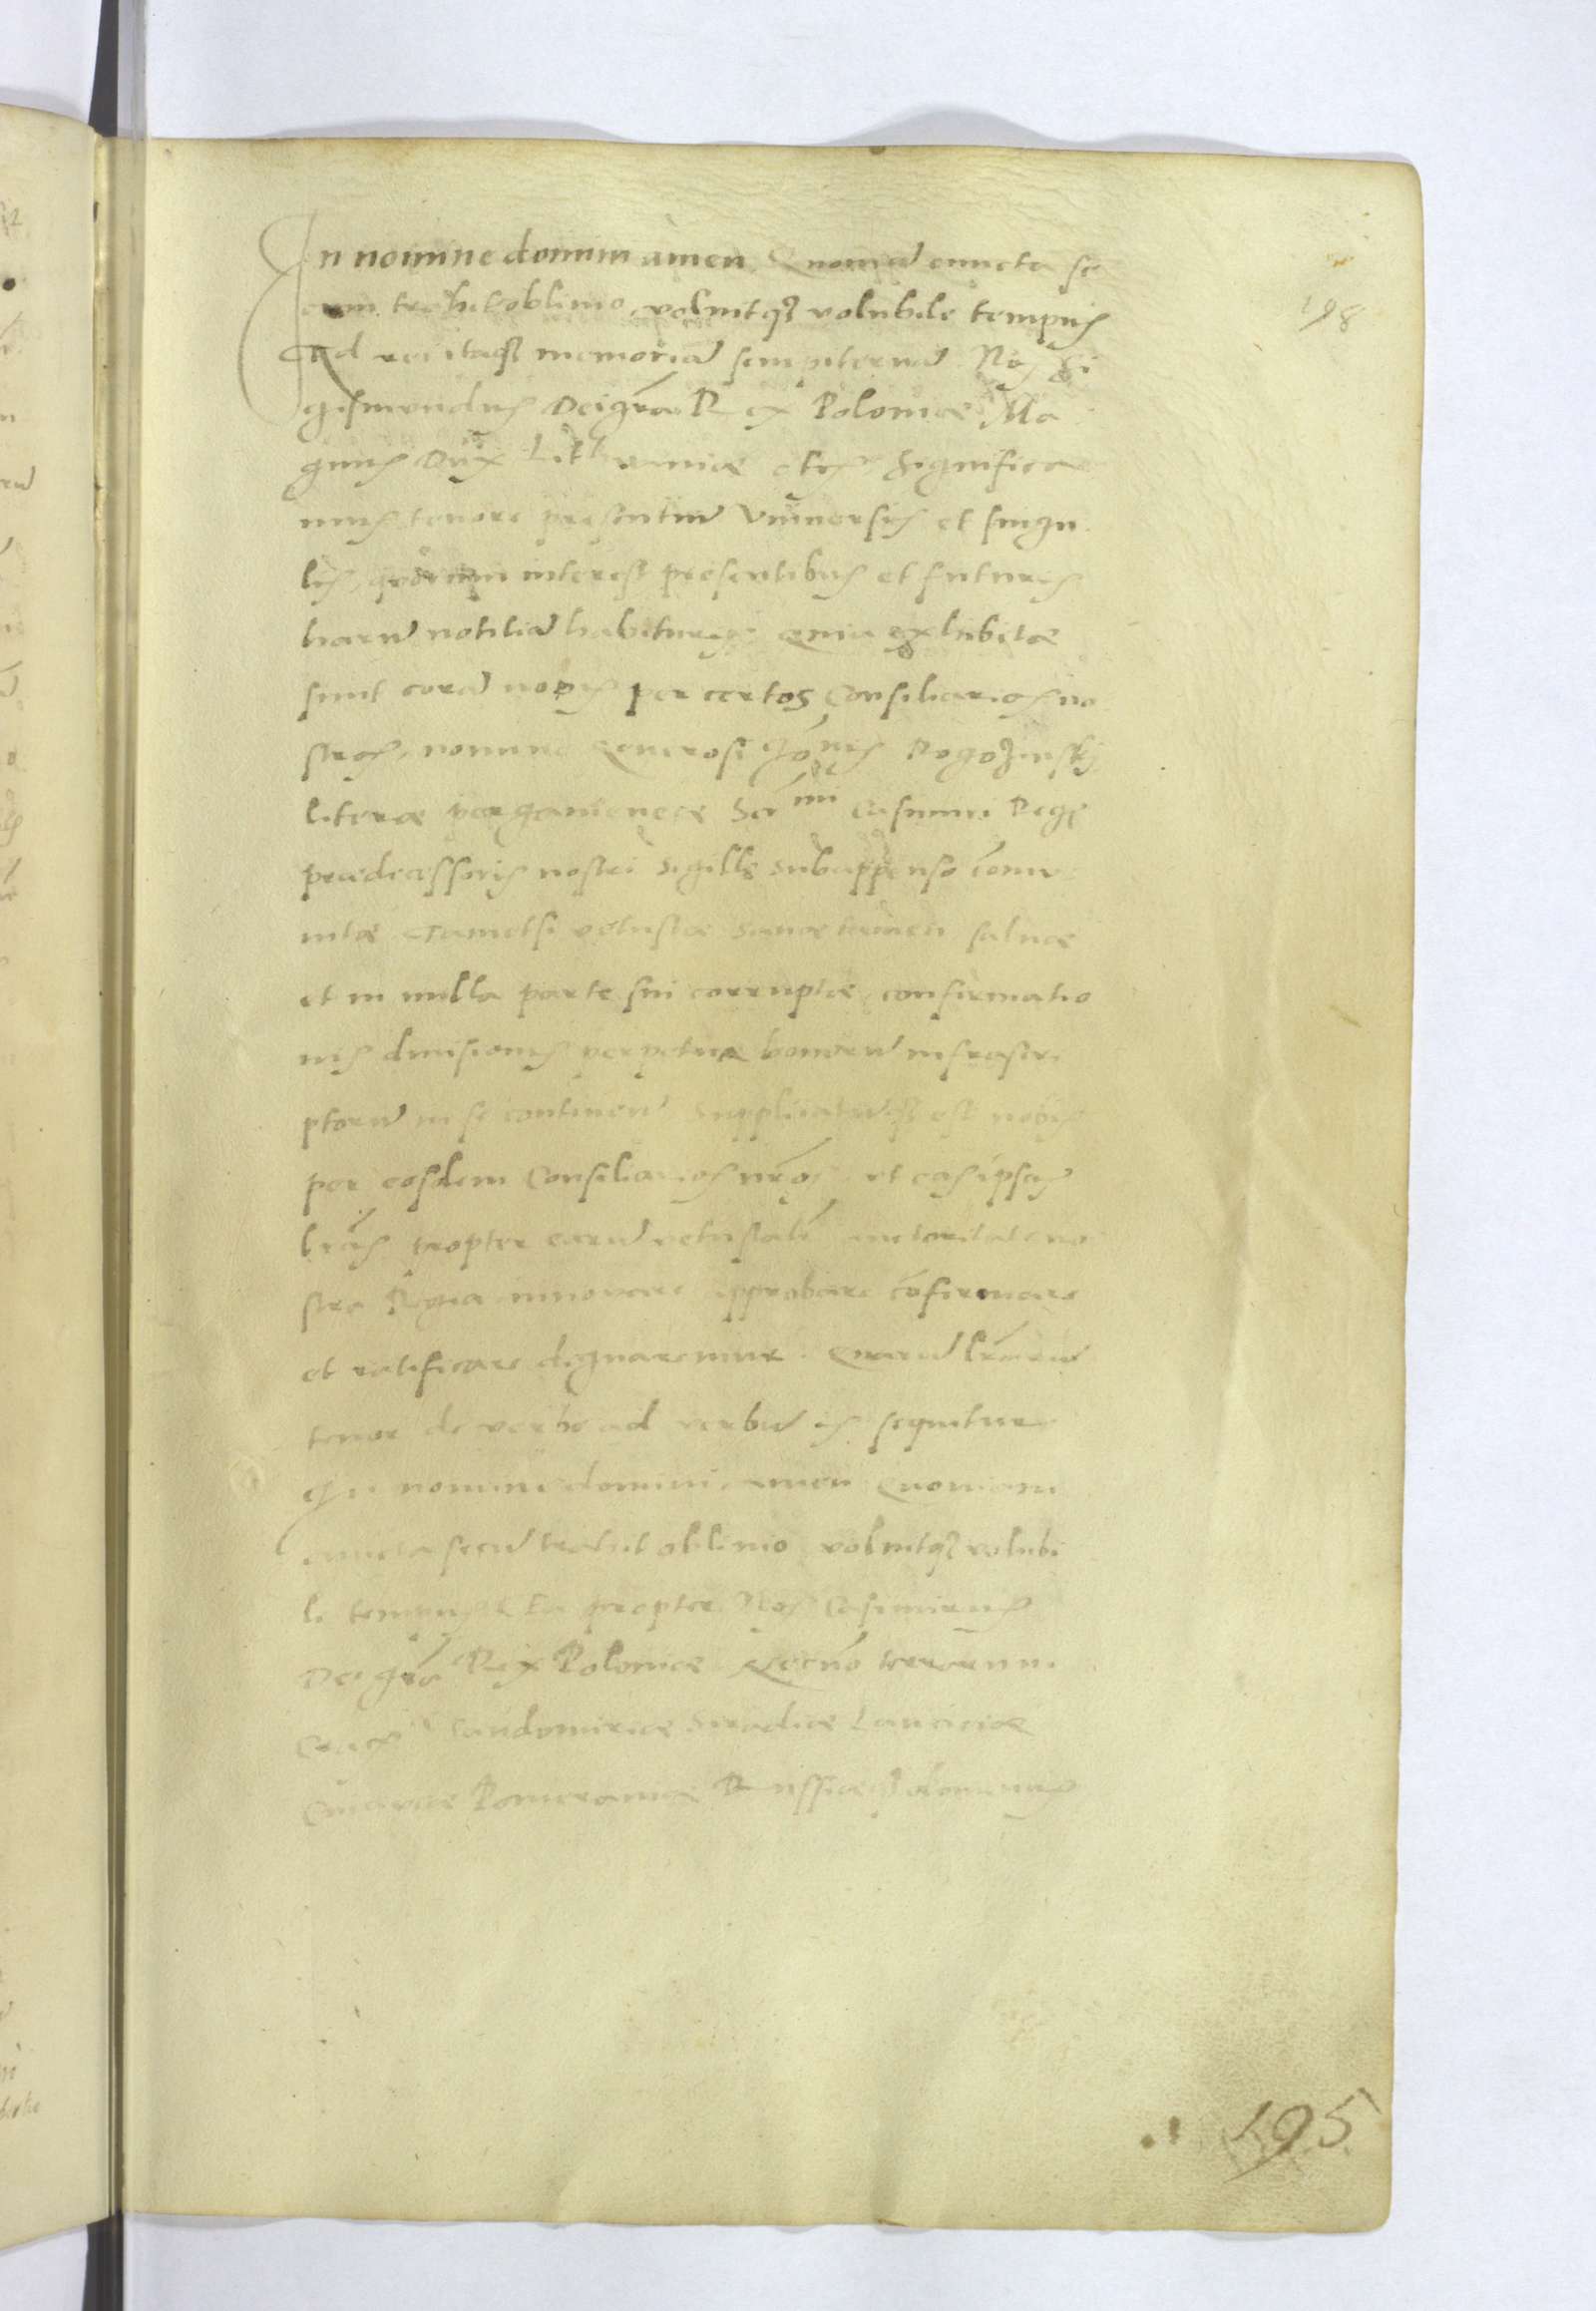 In nomine domini amen Quoniā cuncta se
cum trahit oblivio volvitqȝ volubile tempus
Ad rei itaqȝ memoriā sempiternā Nos Si
gismundus Dei grā Rex Poloniæ Ma
gnus Dux Lithuaniæ etc Significa
mus tenore presentiū Vniversis et singu
lis quorum interest presentibus et futuris
harū notitiā habituris quia exhibitæ
sunt corā nobis per certos Consiliarios no
stros nomine Generosi Rogozinskj
literæ pergameneæ Ser mi Casimiri Regis
prædecessoris nostri sigillo subappenso com̄u
nitæ Tametsi vetustæ sanæ tamen salvæ
et in nulla parte sui corruptæ confirmatio
nis divisionis perpetuæ bonorū infrascri
ptorū in se continen̄ Supplicatūqȝ est nobis
per eosdem Consiliarios nr̄os ut eas ipsas
lr̄as propter earū vetustatē autoritate no
stra Regia innovare approbare cōfirmare
et ratificare dignaremur Quarū lr̄arū
tenor de verbo ad verbū is sequitur
In nomine domini amen Quoniam
cuncta secū trahit oblivio volvitqȝ volubi
le tempus Ea propter Nos Casimirus
Dei grā Rex Poloniæ Necnō terrarum
Crac Sandomiriæ Siradiæ Lanciciæ
Cuiaviæ Pomeraniæ Russiæqȝ dominus
198
195